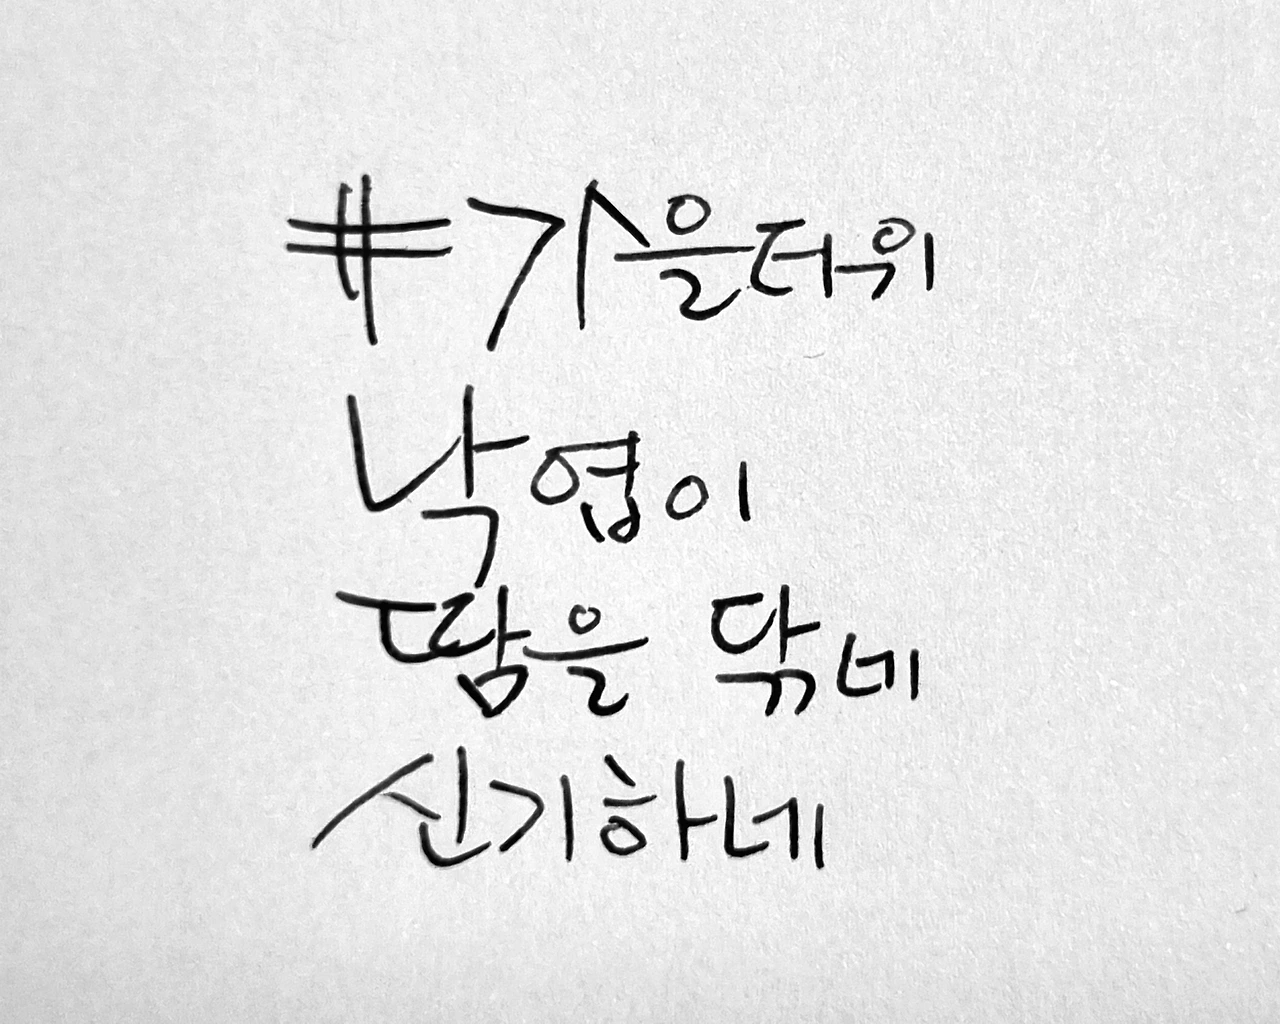 #가을더위
낙엽이
땀을 닦네
신기하네